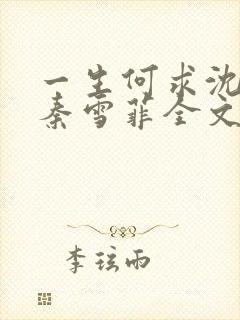 一生何求沈
秦雪菲全文
李玹雨